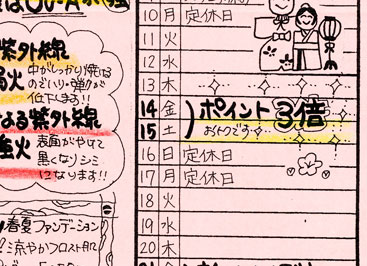 紫外線
中がしっかり焼ける
のでハリ・弾力が
低下します!!
なる紫外線
表面がやけて
黒くなりシミ
になります!!
春夏ファンデーション
涼やかフロスト肌
10 月 定休日
11 火
12 水
13 木
14 金
15 土
ポイント3倍
おトクです
16 日 定休日
17 月 定休日
18 火
19 水
20 木